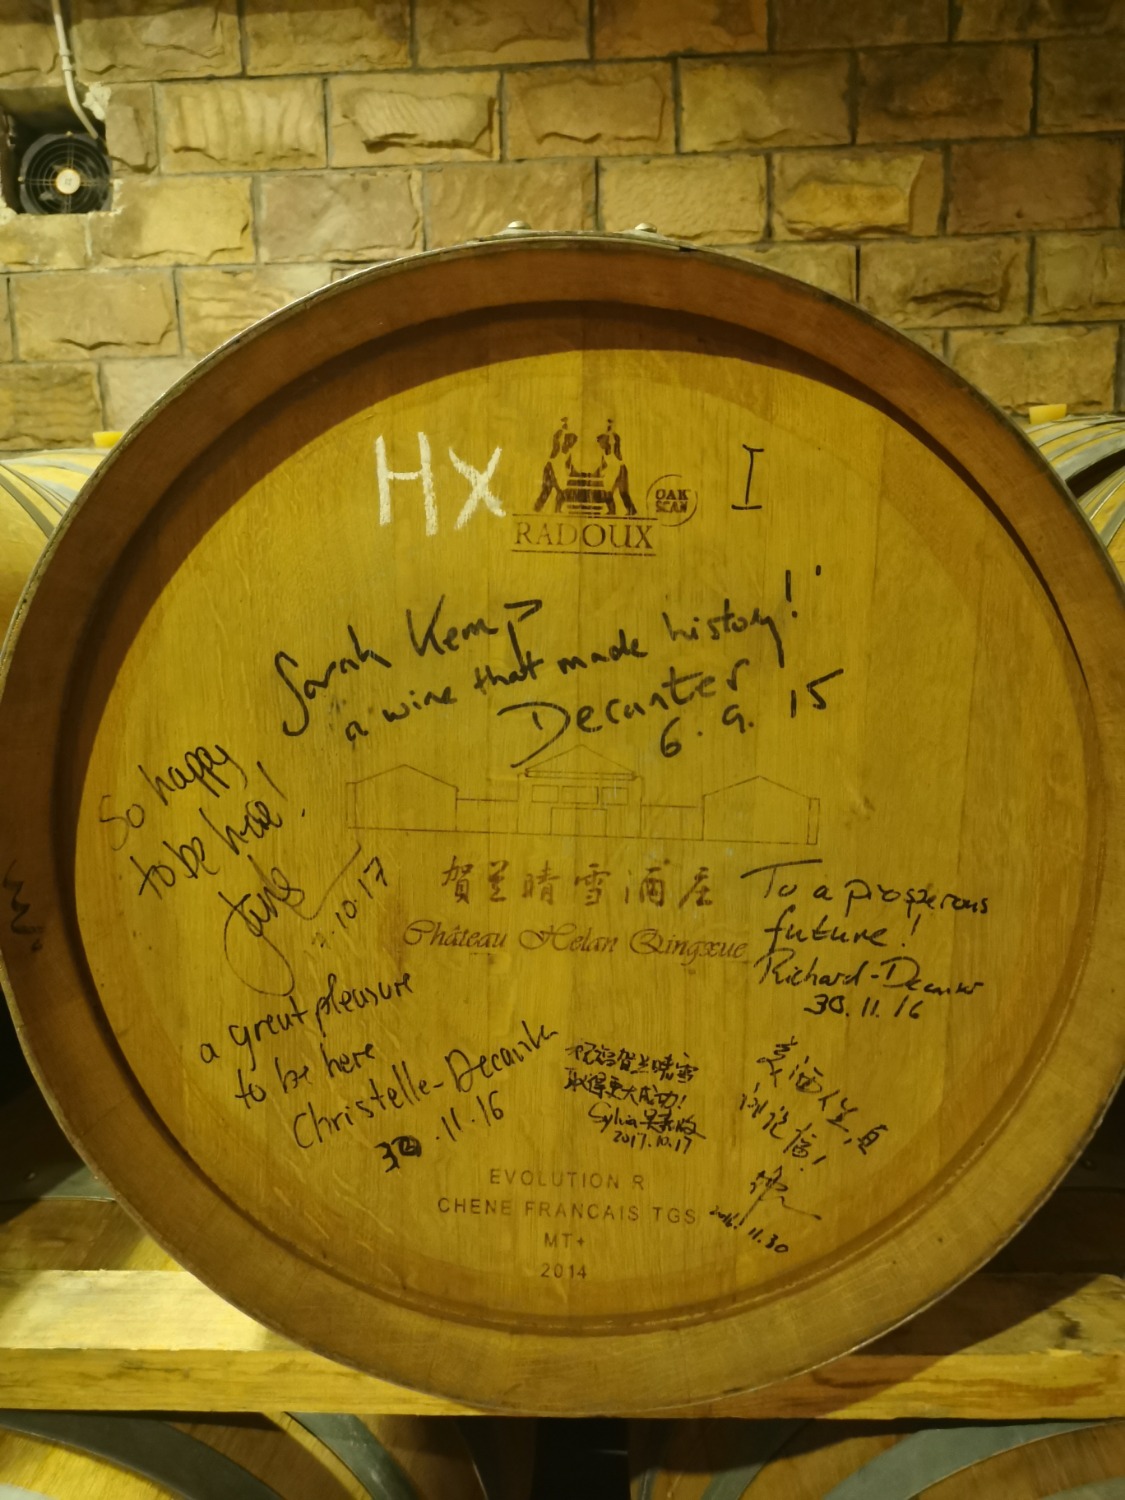 HX
I
OAK
SCAN
RADOUX
Sarah Kemp
a wine that made history!
Decanter
6.9.15
So happy
to be here!
10.17
贺兰晴雪酒庄
Château Helan Qingxue
To a prosperous
future!
Richard - Decanter
30.11.16
a great pleasure
to be here
Christelle - Decanter
30.11.16
祝福贺兰晴雪
取得更大成功!
Sylvia
2017.10.17
美酒
2016.11.30
EVOLUTION R
CHENE FRANCAIS TGS
MT+
2014